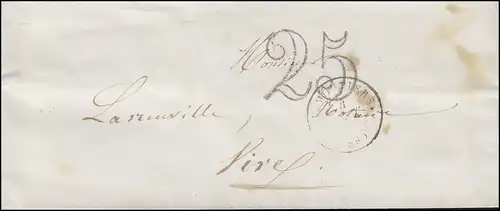 25
Monsieur
Larenville, Notaire
Vire